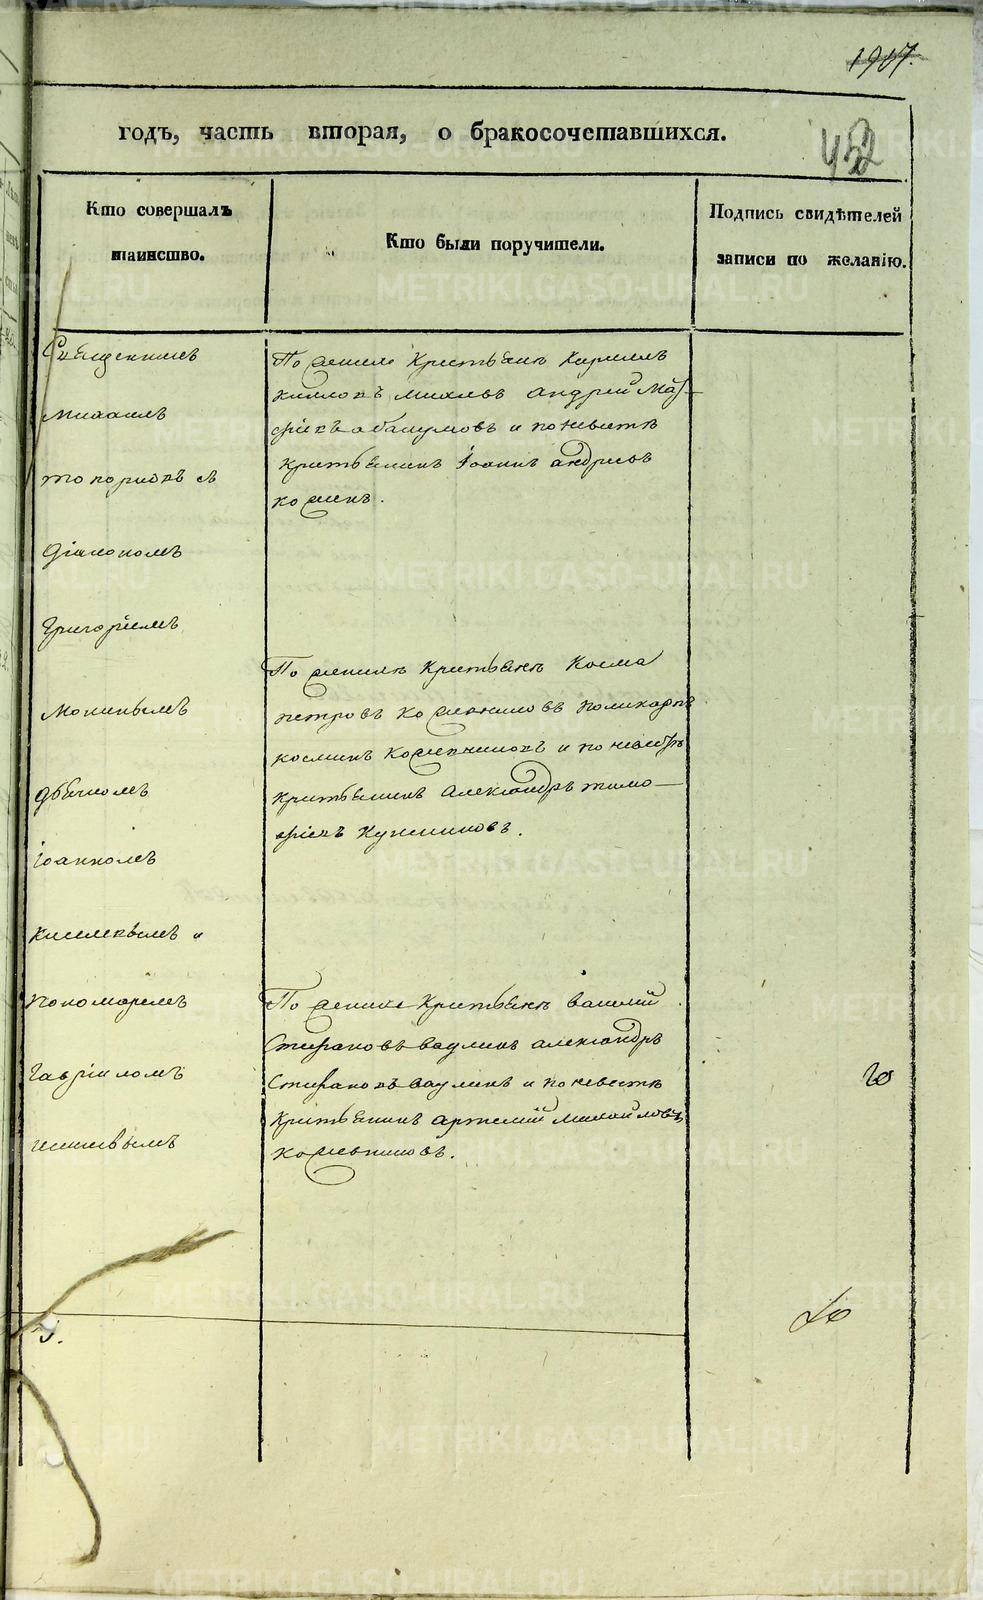 1907.
годъ, часть вторая, о бракосочетавшихся.
452
Кто совершалъ
таинство.
Кто были поручители.
Подпись свидѣтелей
записи по желанію.
Священникъ
Михаилъ
Топорковъ
діакономъ
Григоріемъ
дьячкомъ
Іоанномъ
Киселевымъ и
пономаремъ
Гавріиломъ
По женихѣ Крестьяне Кирилъ
Андрей Мат
фіевъ и по невѣстѣ
Крестьянинъ Іоаннъ Андреевъ
По женихѣ Крестьяне Косма
Петровъ Кожевниковъ Поликарпъ
Косминъ Кожевниковъ и по невѣстѣ
Крестьянинъ Александръ Тимо
фіевъ
По женихѣ Крестьяне Василій
Стефановъ Ваулинъ Александръ
Стефановъ Ваулинъ и по невѣстѣ
Крестьянинъ Артемій Михайловъ
Кожевниковъ.
3.
METRIKI.GASO-URAL.RU